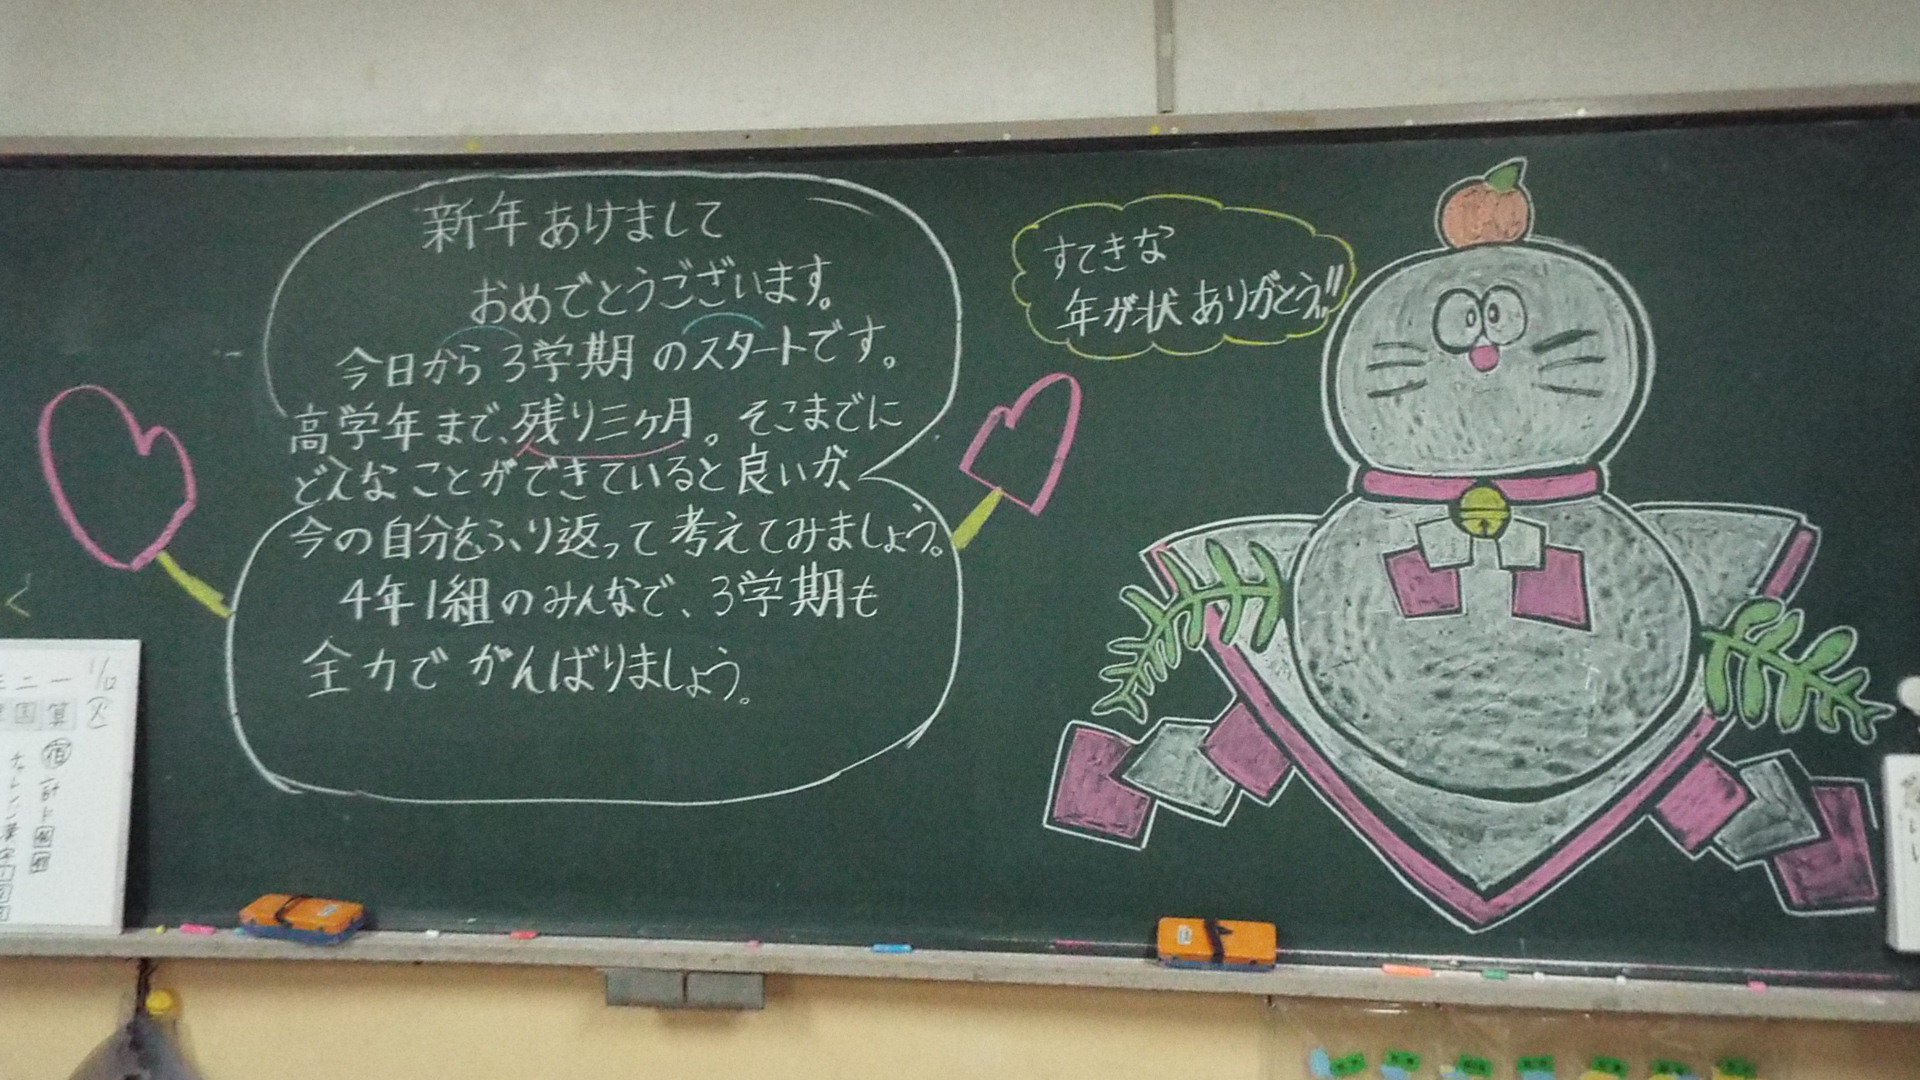 新年あけまして
おめでとうございます。
今日から3学期のスタートです。
高学年まで、残り三ヶ月。そこまでに
どんなことができていると良いか、
今の自分をふり返って考えてみましょう。
4年1組のみんなで、3学期も
全力でがんばりましょう。
すてきな
年が状ありがとう!!
1/12
火
一
二
算
国
宿
計ド
チャレンジ漢字